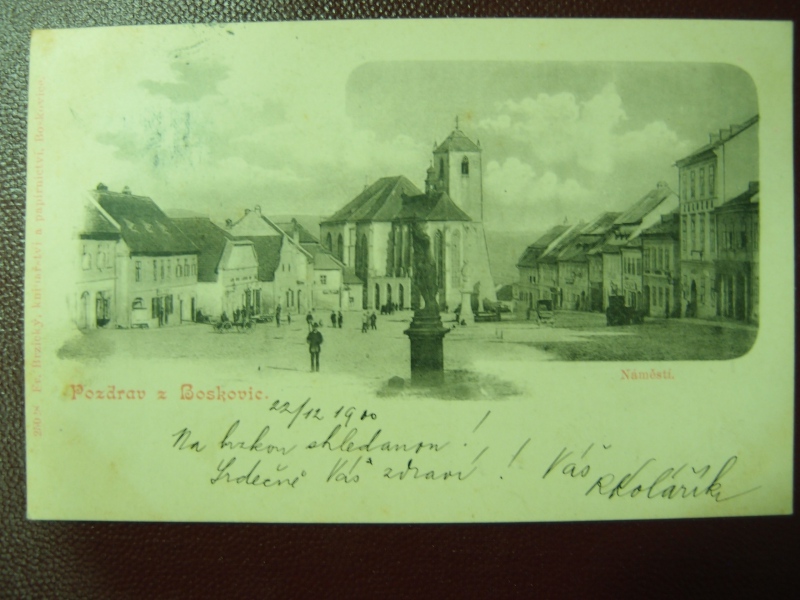 Pozdrav z Boskovic.
Náměstí.
22/12 1900
Na brzkou shledanou!
Srdečně Vás zdraví! Váš
Kolářík
knihařství a papírnictví, Boskovice.